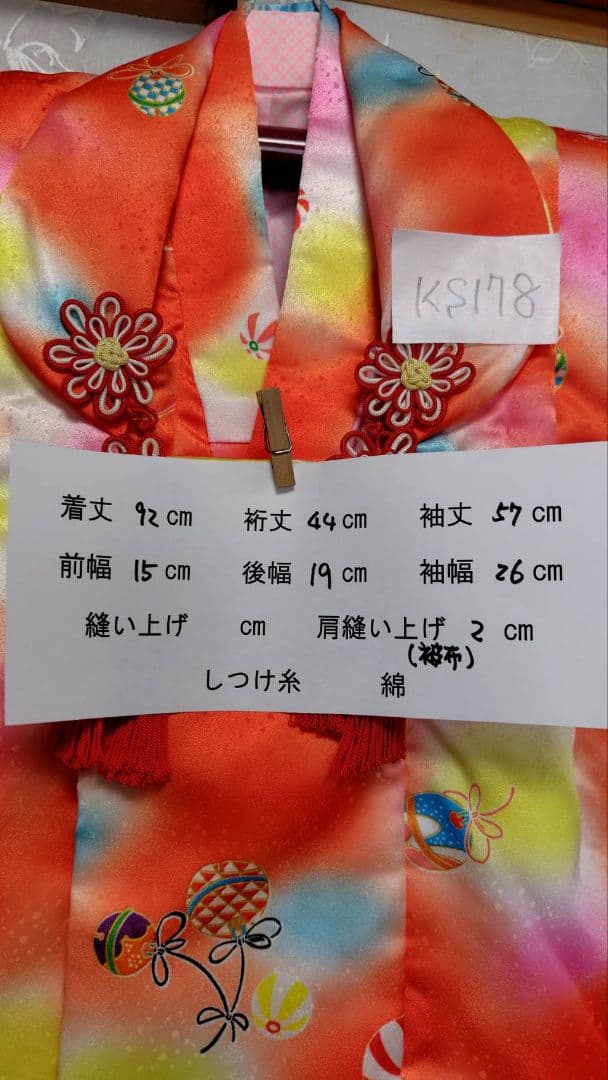 KS178
着丈 92cm 裄丈 44cm 袖丈 57cm
前幅 15cm 後幅 19cm 袖幅 26cm
縫い上げ cm 肩縫い上げ 2 cm
(被布)
しつけ糸 綿